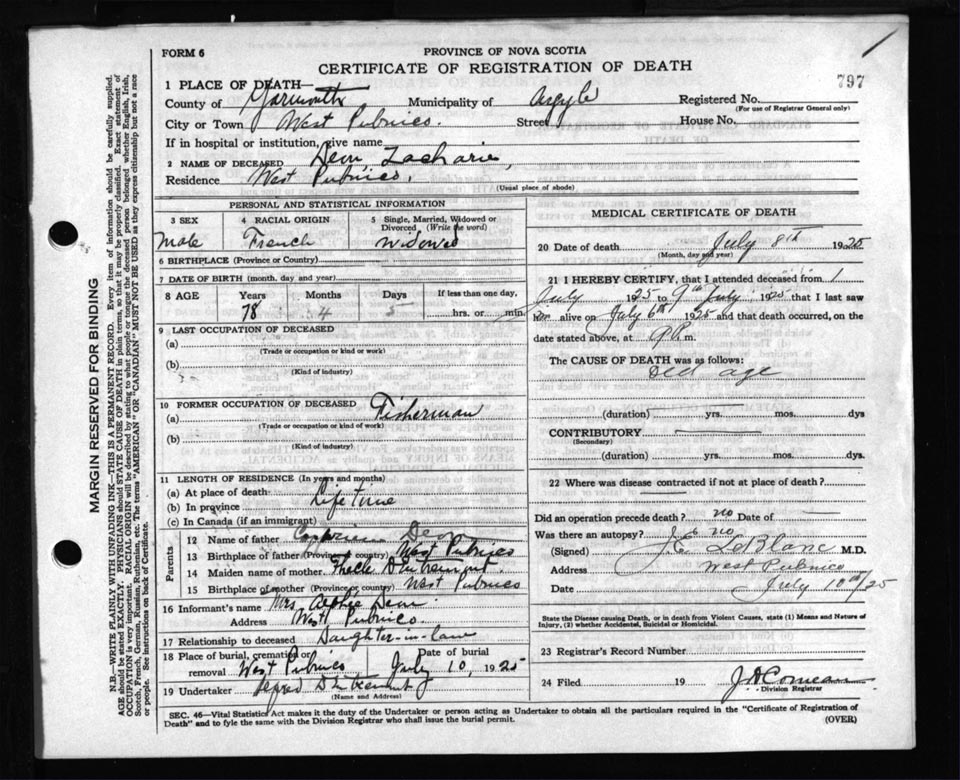 FORM 6
PROVINCE OF NOVA SCOTIA
CERTIFICATE OF REGISTRATION OF DEATH
797
1 PLACE OF DEATH—
County of Yarmouth Municipality of Argyle Registered No.
(For use of Registrar General only)
City or Town West Pubnico. Street House No.
If in hospital or institution, give name
2 NAME OF DECEASED Deon, Zacharie,
Residence West Pubnico.
(Usual place of abode)
PERSONAL AND STATISTICAL INFORMATION
3 SEX 4 RACIAL ORIGIN 5 Single, Married, Widowed or Divorced (Write the word)
Male French Widowed
6 BIRTHPLACE (Province or Country)
7 DATE OF BIRTH (month, day and year)
8 AGE Years Months Days If less than one day,
78 4 5 hrs. or min.
9 LAST OCCUPATION OF DECEASED
(a)
(Trade or occupation or kind or work)
(b)
(Kind of industry)
10 FORMER OCCUPATION OF DECEASED
(a) Fisherman
(Trade or occupation or kind of work)
(b)
(Kind of industry)
11 LENGTH OF RESIDENCE (In years and months)
(a) At place of death
(b) In province Life Time
(c) In Canada (if an immigrant)
Parents
12 Name of father Deon
13 Birthplace of father (Province or country) West Pubnico
14 Maiden name of mother D'Entremont
15 Birthplace of mother (Province or country) West Pubnico
16 Informant's name Mrs. Deon
Address West Pubnico.
17 Relationship to deceased Daughter-in-law
18 Place of burial, cremation or removal West Pubnico Date of burial July 10, 1925
19 Undertaker D'Entremont
(Name and Address)
MEDICAL CERTIFICATE OF DEATH
20 Date of death July 8th 1925
(Month, day and year)
21 I HEREBY CERTIFY, that I attended deceased from 1
July 1925 to 9th July, 1925 that I last saw
alive on July 6th 1925 and that death occurred, on the
date stated above, at 9 P. m.
The CAUSE OF DEATH was as follows:
Old age
(duration) yrs. mos. dys
CONTRIBUTORY
(Secondary)
(duration) yrs. mos. dys
22 Where was disease contracted if not at place of death?
Did an operation precede death? no Date of
Was there an autopsy? no
(Signed) J.E. LeBlanc M.D.
Address West Pubnico
Date July 10th/25
State the Disease causing Death, or in death from Violent Causes, state (1) Means and Nature of Injury, (2) whether Accidental, Suicidal or Homicidal.
23 Registrar's Record Number
24 Filed 19 J A Comeau
Division Registrar
SEC. 46—Vital Statistics Act makes it the duty of the Undertaker or person acting as Undertaker to obtain all the particulars required in the "Certificate of Registration of
Death" and to fyle the same with the Division Registrar who shall issue the burial permit.
(OVER)
MARGIN RESERVED FOR BINDING
N.B.—WRITE PLAINLY WITH UNFADING INK—THIS IS A PERMANENT RECORD. Every item of information should be carefully supplied.
AGE should be stated EXACTLY. PHYSICIANS should STATE CAUSE OF DEATH in plain terms, so that it may be properly classified. Exact statement of
OCCUPATION is very important. RACIAL ORIGIN will be described by stating to what people or tongue the deceased person belonged whether English, Irish,
Scotch, French, German, Russian, Ruthenian, etc. The terms "AMERICAN" or "CANADIAN" MUST NOT BE USED as they express citizenship but not a race
or people. See instructions on back of Certificate.